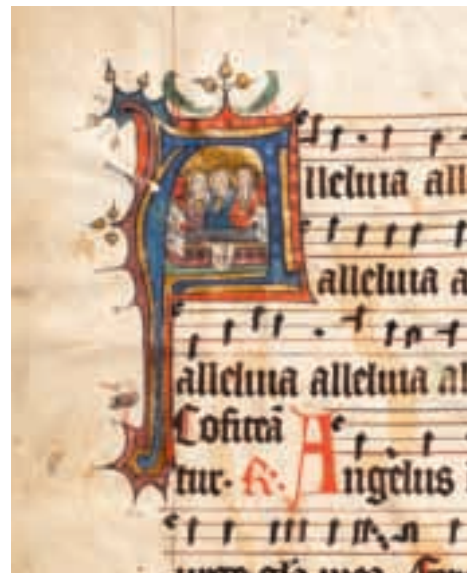 Alleluia all
alleluia a
alleluia alleluia al
Cofiteã
tur. R. Angelus